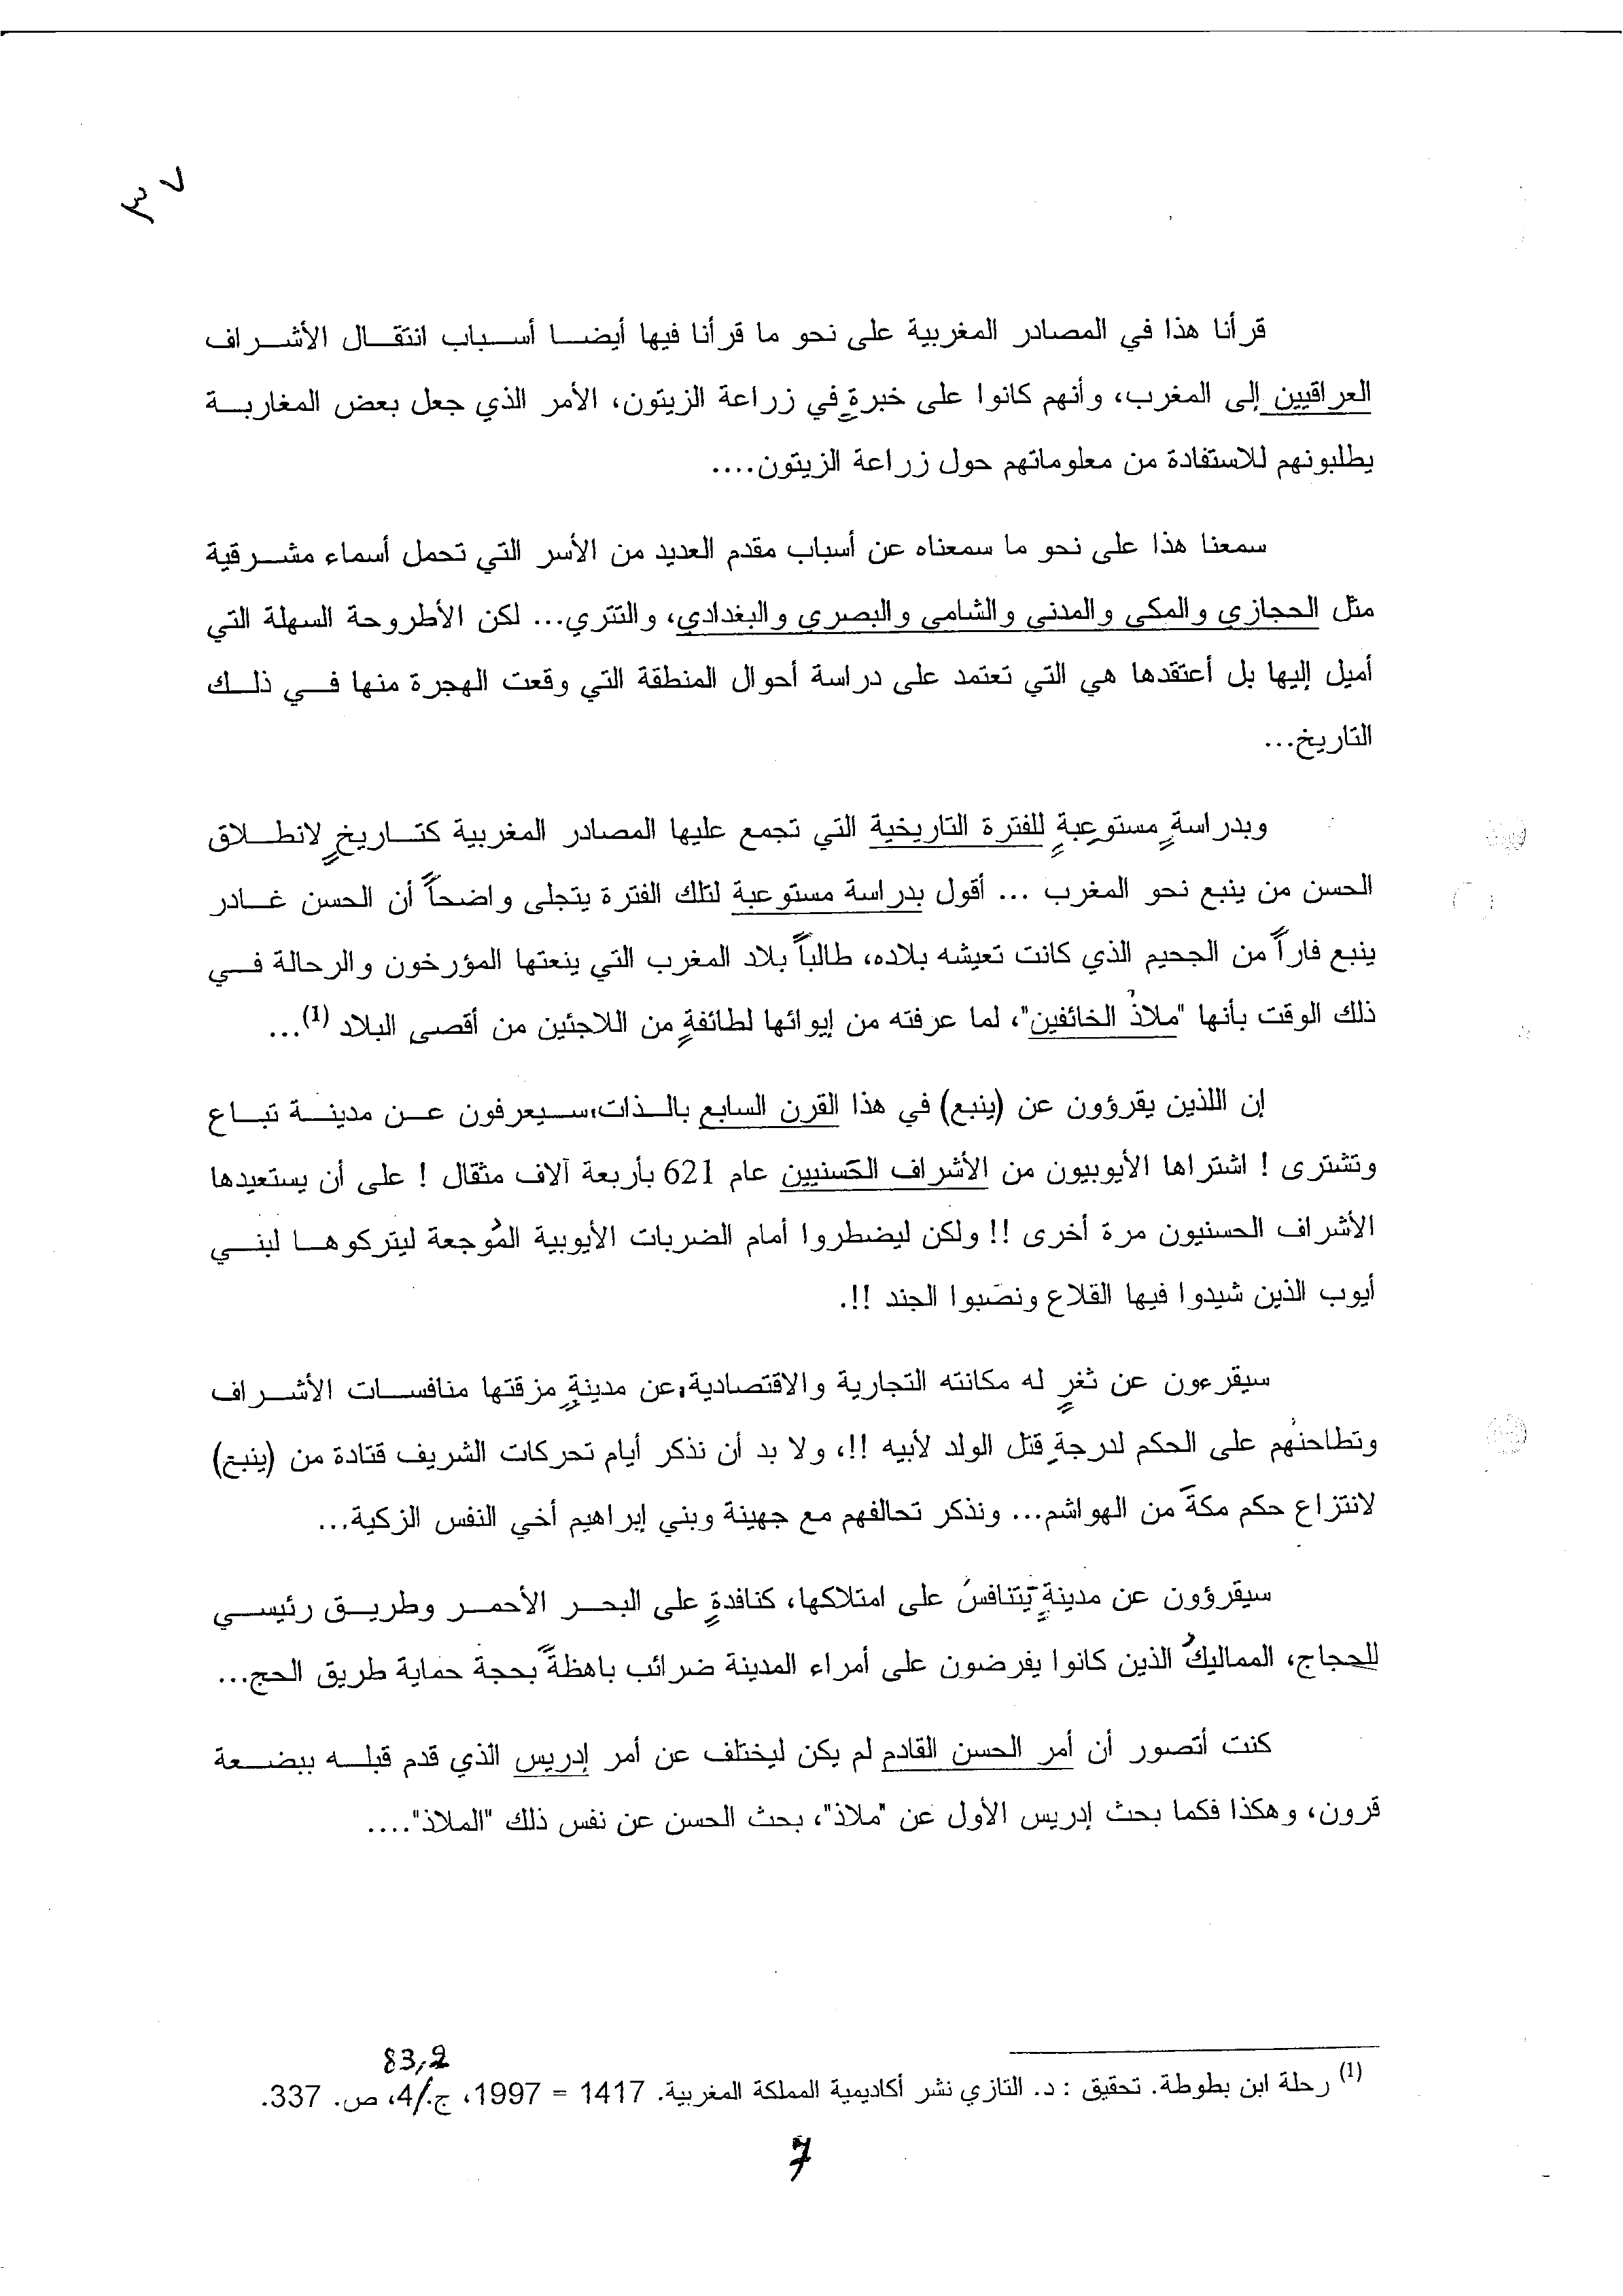 ٣٧
قرأنا هذا في المصادر المغربية على نحو ما قرأنا فيها أيضا أسباب انتقال الأشراف
العراقيين إلى المغرب، وأنهم كانوا على خبرةٍ في زراعة الزيتون، الأمر الذي جعل بعض المغاربة
يطلبونهم للاستفادة من معلوماتهم حول زراعة الزيتون....
سمعنا هذا على نحو ما سمعناه عن أسباب مقدم العديد من الأسر التي تحمل أسماء مشرقية
مثل الحجازي والمكي والمدني والشامي والبصري والبغدادي، والتتري... لكن الأطروحة السهلة التي
أميل إليها بل أعتقدها هي التي تعتمد على دراسة أحوال المنطقة التي وقعت الهجرة منها في ذلك
التاريخ...
وبدراسةٍ مستوعِبةٍ للفترة التاريخية التي تجمع عليها المصادر المغربية كتاريخٍ لانطلاق
الحسن من ينبع نحو المغرب ... أقول بدراسة مستوعبة لتلك الفترة يتجلى واضحاً أن الحسن غادر
ينبع فاراً من الجحيم الذي كانت تعيشه بلاده، طالباً بلاد المغرب التي ينعتها المؤرخون والرحالة في
ذلك الوقت بأنها "ملاذُ الخائفين"، لما عرفته من إيوائها لطائفةٍ من اللاجئين من أقصى البلاد (1)...
إن اللذين يقرؤون عن (ينبع) في هذا القرن السابع بالذات، سيعرفون عن مدينة تباع
وتشترى ! اشتراها الأيوبيون من الأشراف الحَسنيين عام 621 بأربعة آلاف مثقال ! على أن يستعيدها
الأشراف الحسنيون مرة أخرى !! ولكن ليضطروا أمام الضربات الأيوبية المُوجعة ليتركوها لبني
أيوب الذين شيدوا فيها القلاع ونصَبوا الجند !!.
سيقرءون عن ثغرٍ له مكانته التجارية والاقتصادية، عن مدينةٍ مزقتها منافسات الأشراف
وتطاحنُهم على الحكم لدرجةِ قتل الولد لأبيه !!، ولا بد أن نذكر أيام تحركات الشريف قتادة من (ينبع)
لانتزاع حكم مكةَ من الهواشم... ونذكر تحالفهم مع جهينة وبني إبراهيم أخي النفس الزكية...
سيقرؤون عن مدينةٍ يَتنافسُ على امتلاكها، كنافدةٍ على البحر الأحمر وطريق رئيسي
للحجاج، المماليكُ الذين كانوا يفرضون على أمراء المدينة ضرائب باهظةً بحجة حماية طريق الحج...
كنت أتصور أن أمر الحسن القادم لم يكن ليختلف عن أمر إدريس الذي قدم قبله ببضعة
قرون، وهكذا فكما بحث إدريس الأول عن "ملاذ"، بحث الحسن عن نفس ذلك "الملاذ"....
83,2
(1) رحلة ابن بطوطة. تحقيق : د. التازي نشر أكاديمية المملكة المغربية. 1417 = 1997، ج./4، ص. 337.
7